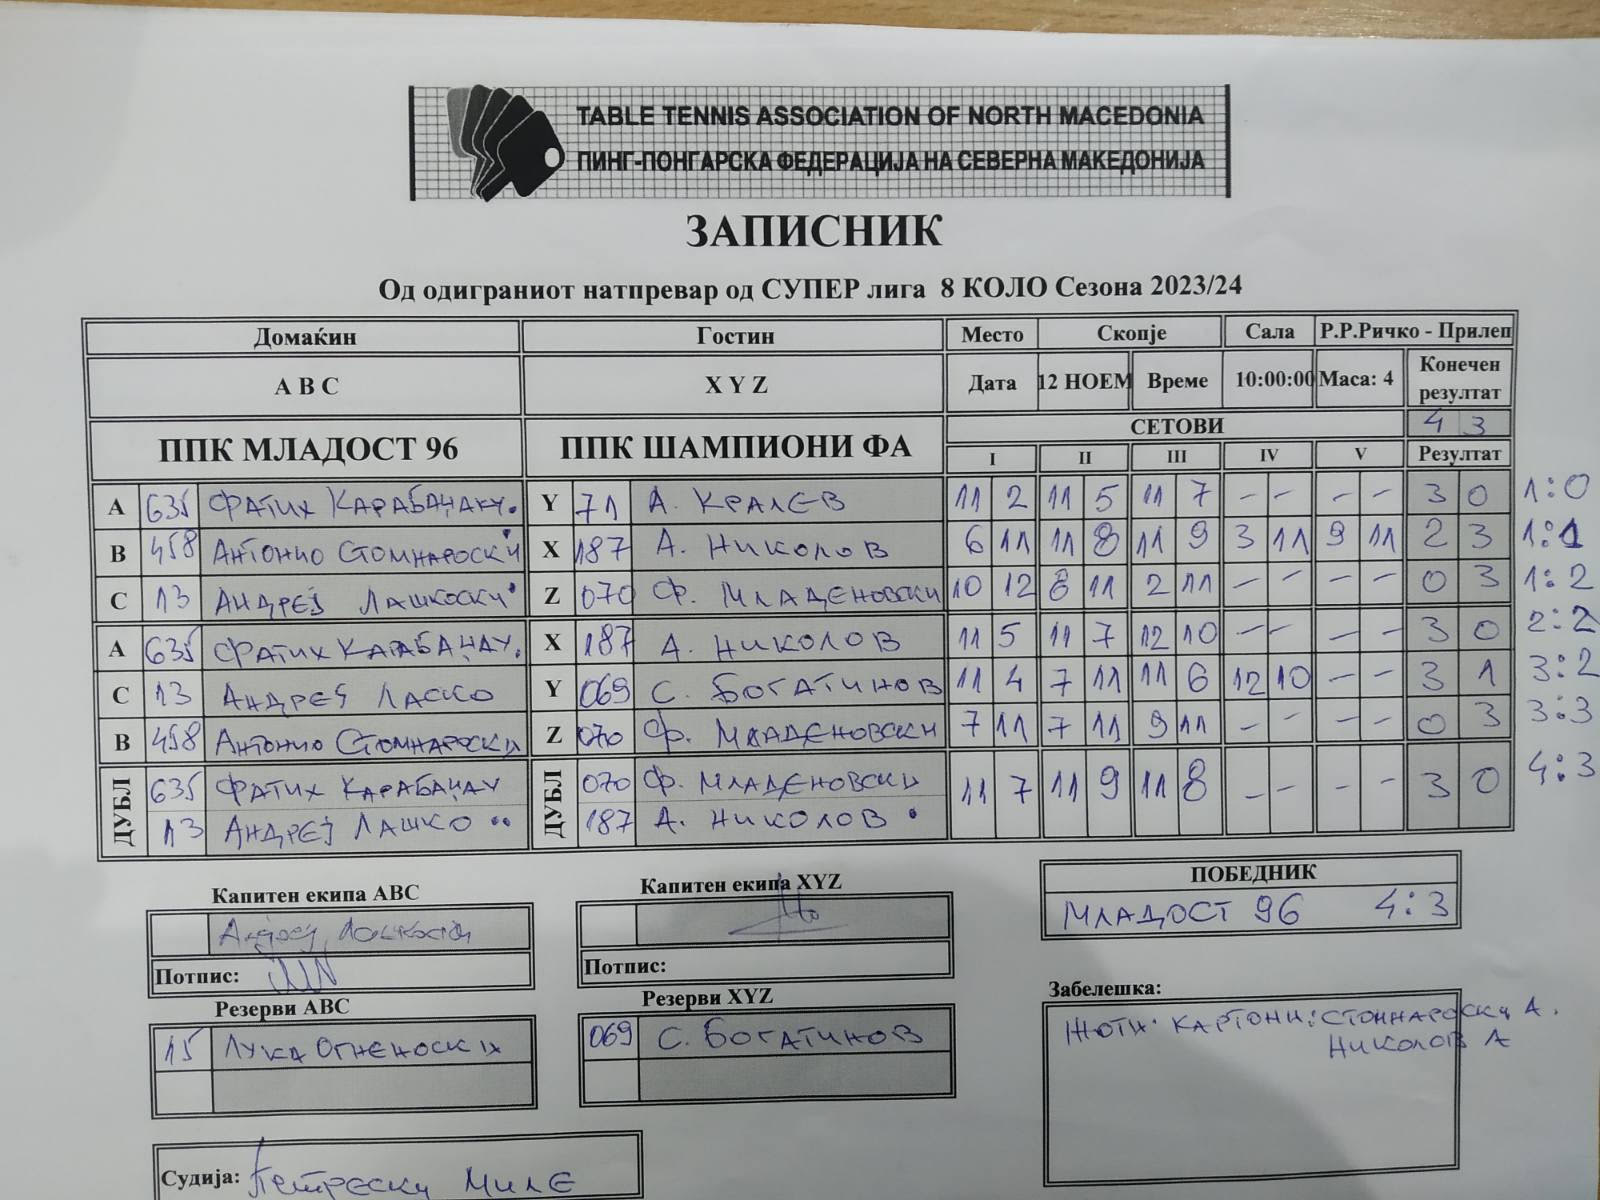 TABLE TENNIS ASSOCIATION OF NORTH MACEDONIA
ПИНГ-ПОНГАРСКА ФЕДЕРАЦИЈА НА СЕВЕРНА МАКЕДОНИЈА
ЗАПИСНИК
Од одиграниот натпревар од СУПЕР лига 8 КОЛО Сезона 2023/24
Домаќин Гостин Место Скопје Сала Р.Р.Ричко - Прилеп
A B C X Y Z Дата 12 НОЕМ Време 10:00:00 Маса: 4 Конечен резултат
ППК МЛАДОСТ 96 ППК ШАМПИОНИ ФА СЕТОВИ 4 3
I II III IV V Резултат
A 635 ФАТИХ КАРАБАЏАКУ. Y 71 А. КРАЛЕВ 11 2 11 5 11 7 - - - - 3 0 1:0
B 458 АНТОНИО СТОМНАРОСКИ X 187 А. НИКОЛОВ 6 11 11 8 11 9 3 11 9 11 2 3 1:1
C 13 АНДРЕЈ ЛАШКОСКИ Z 070 Ф. МЛАДЕНОВСКИ 10 12 8 11 2 11 - - - - 0 3 1:2
A 635 ФАТИХ КАРАБАЏАУ. X 187 А. НИКОЛОВ 11 5 11 7 12 10 - - - - 3 0 2:2
C 13 АНДРЕЈ ЛАСКО Y 069 С. БОГАТИНОВ 11 4 7 11 11 6 12 10 - - 3 1 3:2
B 458 АНТОНИО СТОМНАРОСКИ Z 070 Ф. МЛАДЕНОВСКИ 7 11 7 11 9 11 - - - - 0 3 3:3
ДУБЛ 635 ФАТИХ КАРАБАЏАУ ДУБЛ 070 Ф. МЛАДЕНОВСКИ 11 7 11 9 11 8 - - - - 3 0 4:3
13 АНДРЕЈ ЛАШКО 187 А. НИКОЛОВ
Капитен екипа ABC Капитен екипа XYZ ПОБЕДНИК
Андреј Лашкоски МЛАДОСТ 96 4:3
Потпис: Потпис:
Резерви ABC Резерви XYZ Забелешка:
15 ЛУКА ОГНЕНОСКИ 069 С. БОГАТИНОВ ЖОТИ КАРТОНИ: СТОМНАРОСКИ А.
НИКОЛОВ А
Судија: Петрески МИЛЕ